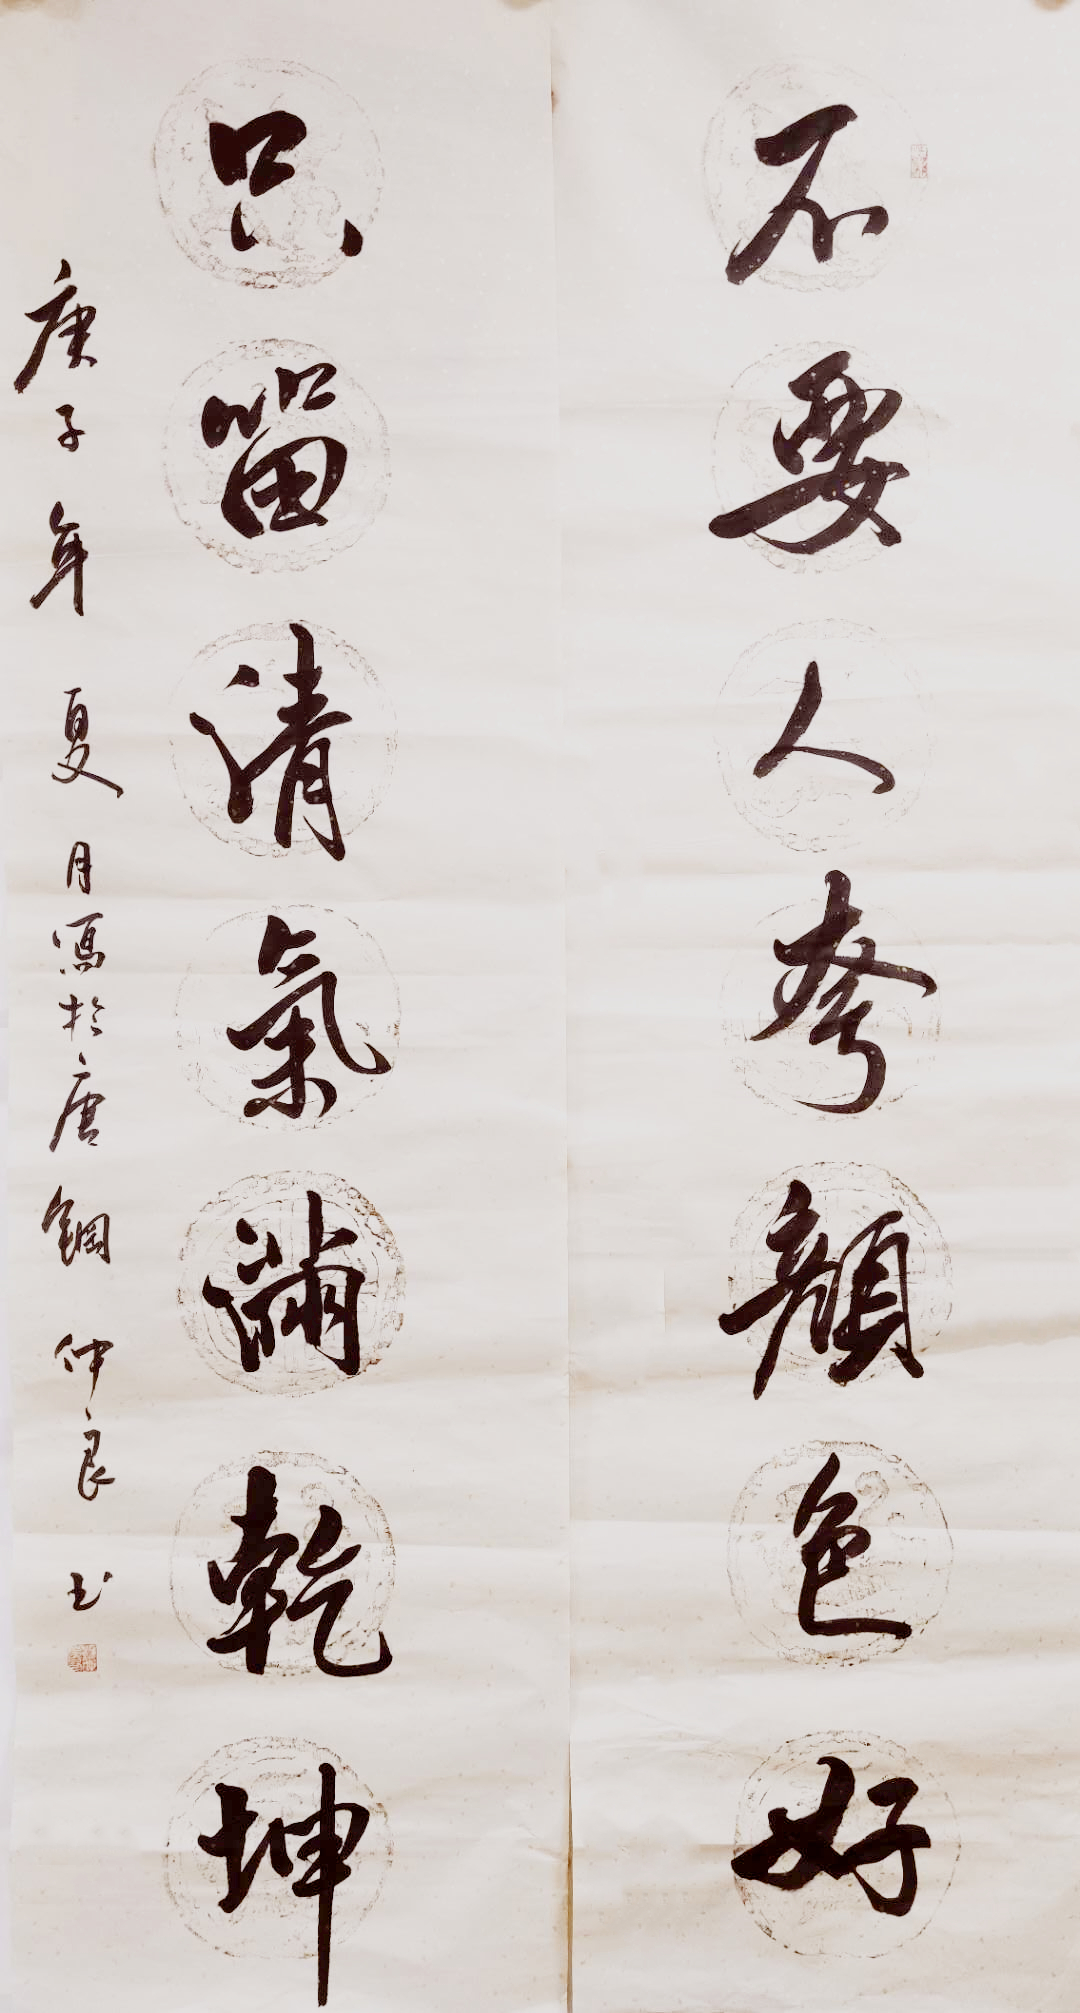 不要人夸顏色好
只留清氣滿乾坤
庚子年夏月寫於唐鋼仲良书